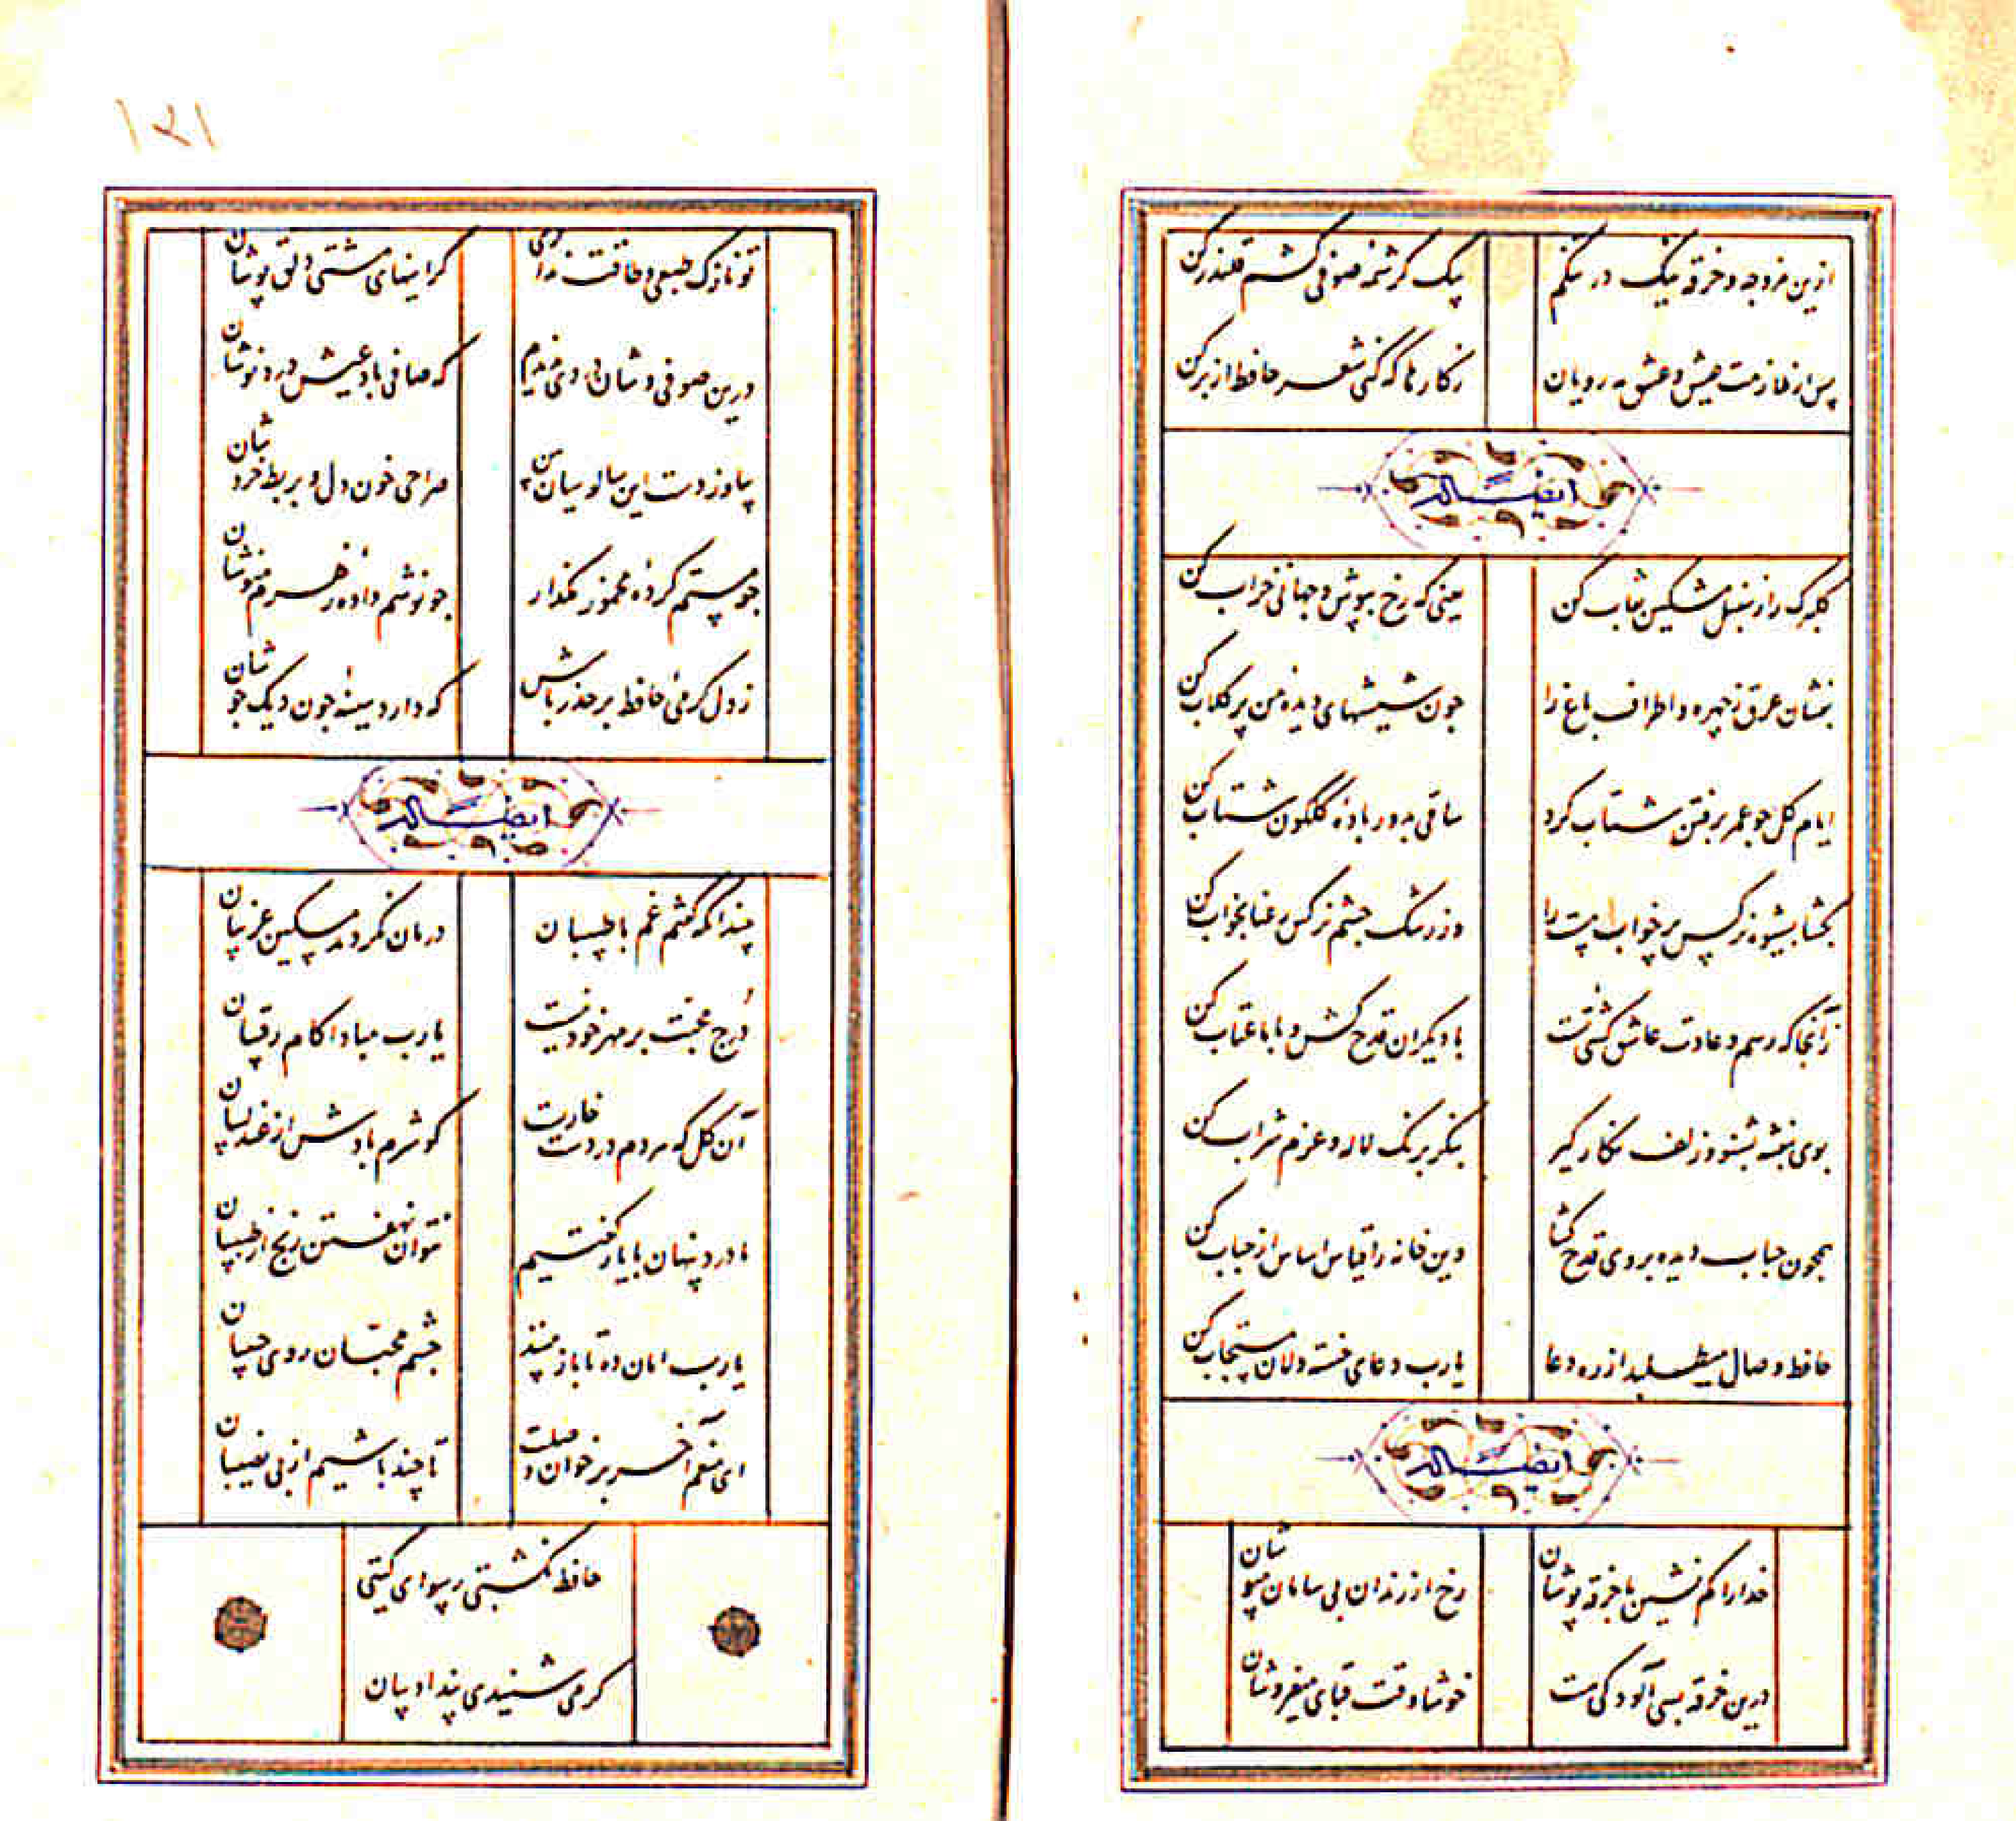 ازین مزوجه و خرقه نیک در تنگم
بیک کرشمه صوفی کشم قلندر کن
پس از ملازمت عیش و عشق مه رویان
ز کارها که کنی شعر حافظ از بر کن
ایضاً له
کلبرک را ز سنبل مشکین نقاب کن
یعنی که رخ بپوش و جهانی خراب کن
بفشان عرق ز چهره و اطراف باغ را
چون شیشهای دیده من پر کلاب کن
ایام کل چو عمر برفتن شتاب کرد
ساقی بدور باده کلکون شتاب کن
بکشا بشیوه نرکس پر خواب مست را
وز رشک چشم نرکس رعنا بخواب کن
زآنجا که رسم و عادت عاشق کشی تست
با دیکران قدح کش و با ما عتاب کن
بوی بنفشه بشنو و زلف نکار کیر
بنکر برنک لاله و عزم شراب کن
همچون حباب دیده بروی قدح کشا
وین خانه را قیاس اساس از حباب کن
حافظ وصال میطلبد از ره دعا
یارب دعای خسته دلان مستجاب کن
ایضاً له
خدارا کم نشین با خرقه پوشان
رخ از رندان بی سامان مپوشان
درین خرقه بسی آلودکی هست
خوشا وقت قبای میفروشان
۱۲۱
تو نازک طبعی و طاقت نداری
کرانیهای مشتی دلق پوشان
درین صوفی وشان دردی ندیدم
که صافی باد عیش درد نوشان
بیا وز دست این سالوسیان بین
صراحی خون دل و بربط خروشان
چو مستم کرده مخمور مکذار
چو نوشم داده زهرم منوشان
ز دل کرمی حافظ بر حذر باش
که دارد سینه چون دیک جوشان
ایضاً له
چندانکه کفتم غم با طبیبان
درمان نکردند مسکین غریبان
درج محبت بر مهر خود نیست
یارب مبادا کام رقیبان
آن کل که هر دم در دست خاریست
کو شرم بادش از عندلیبان
ما درد پنهان با یار کفتیم
نتوان نهفتن رنج از طبیبان
یارب امان ده تا باز بیند
چشم محبان روی حبیبان
ای منعم آخر بر خوان وصلت
تا چند باشیم از بی نصیبان
حافظ نکشتی رسوای کیتی
کر می شنیدی پند ادیبان